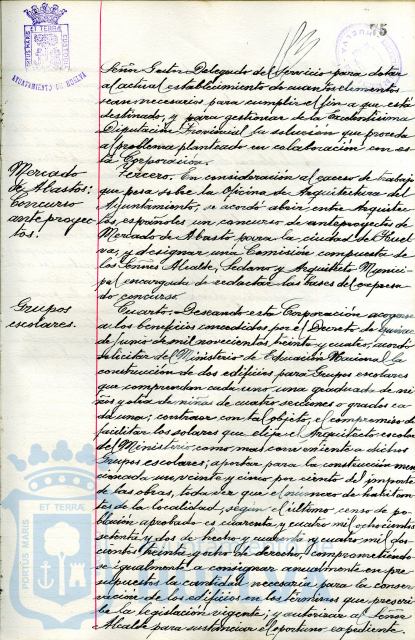 75
PORTUS MARIS ET TERRÆ CUSTODIA
AYUNTAMIENTO DE HUELVA
Señor Gestor Delegado del Servicio para dotar
al actual establecimiento de cuantos elementos
sean necesarios para cumplir el fin a que está
destinado, y para gestionar de la Excelentísima
Diputación Provincial la solución que proceda
al problema planteado en colaboración con es-
ta Corporación.
Mercado
de Abastos:
Concurso
ante proyec-
tos.
Tercero. En consideración al exceso de trabajo
que pesa sobre la Oficina de Arquitectura del
Ayuntamiento, se acordó abrir entre Arquitec-
tos españoles un concurso de anteproyectos de
Mercado de Abasto para la ciudad de Huel-
va, y designar una Comisión compuesta de
los Señores Alcalde, Sedano y Arquitecto Munici-
pal encargada de redactar las bases del expresa-
do concurso.
Grupos
escolares.
Cuarto. Deseando esta Corporación acogerse
a los beneficios concedidos por el Decreto de quince
de junio de mil novecientos treinta y cuatro, acordó
solicitar del Ministerio de Educación Nacional la
construcción de dos edificios para Grupos escolares
que comprendan cada uno, una graduada de ni-
ños y otra de niñas de cuatro secciones o grados ca-
da uno; contraer con tal objeto, el compromiso de
facilitar los solares que elija el Arquitecto escolar
del Ministerio como mas conveniente a dichos
Grupos escolares; aportar para la construcción men-
cionada un veinte y cinco por ciento del importe
de las obras, toda vez que el número de habitan-
tes de la localidad, según el último censo de po-
blación aprobado es cuarenta y cuatro mil ochocientos
setenta y dos de hecho y cuarenta y cuatro mil dos-
cientos treinta y ocho de derecho, comprometiendo-
se igualmente a consignar anualmente en pre-
supuestos la cantidad necesaria para la conser-
vación de los edificios en los términos que prescri-
be la legislación vigente; y autorizar al Señor
Alcalde para sustanciar el oportuno expediente
PORTUS MARIS ET TERRÆ